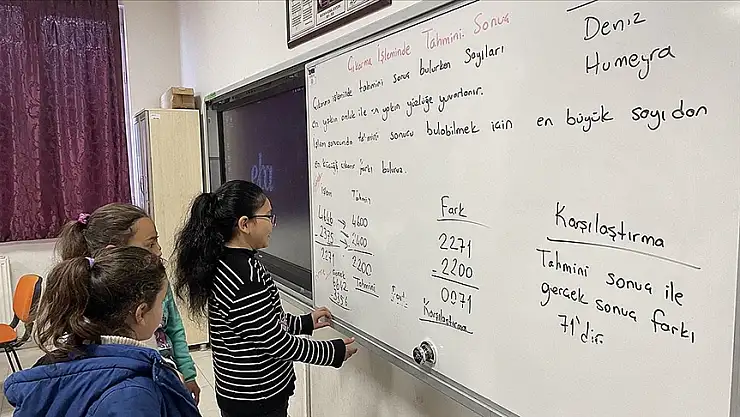 Deniz
Humeyra
Çıkarma İşleminde Tahmini Sonuç
Çıkarma işleminde tahmini sonuç bulurken sayıları
en yakın onluk ile en yakın yüzlüğe yuvarlanır.
İşlem sonucunda tahmini sonucu bulabilmek için en büyük sayıdan
en küçüğü çıkarır farkı buluruz.
Tahmin
4646 → 4600
2375 → 2400
2271 2200
Gerçek Tahmini
Fark
2271
2200
0071
Karşılaştırma
Karşılaştırma
Tahmini sonuç ile
gerçek sonuç farkı
71'dir.
eba